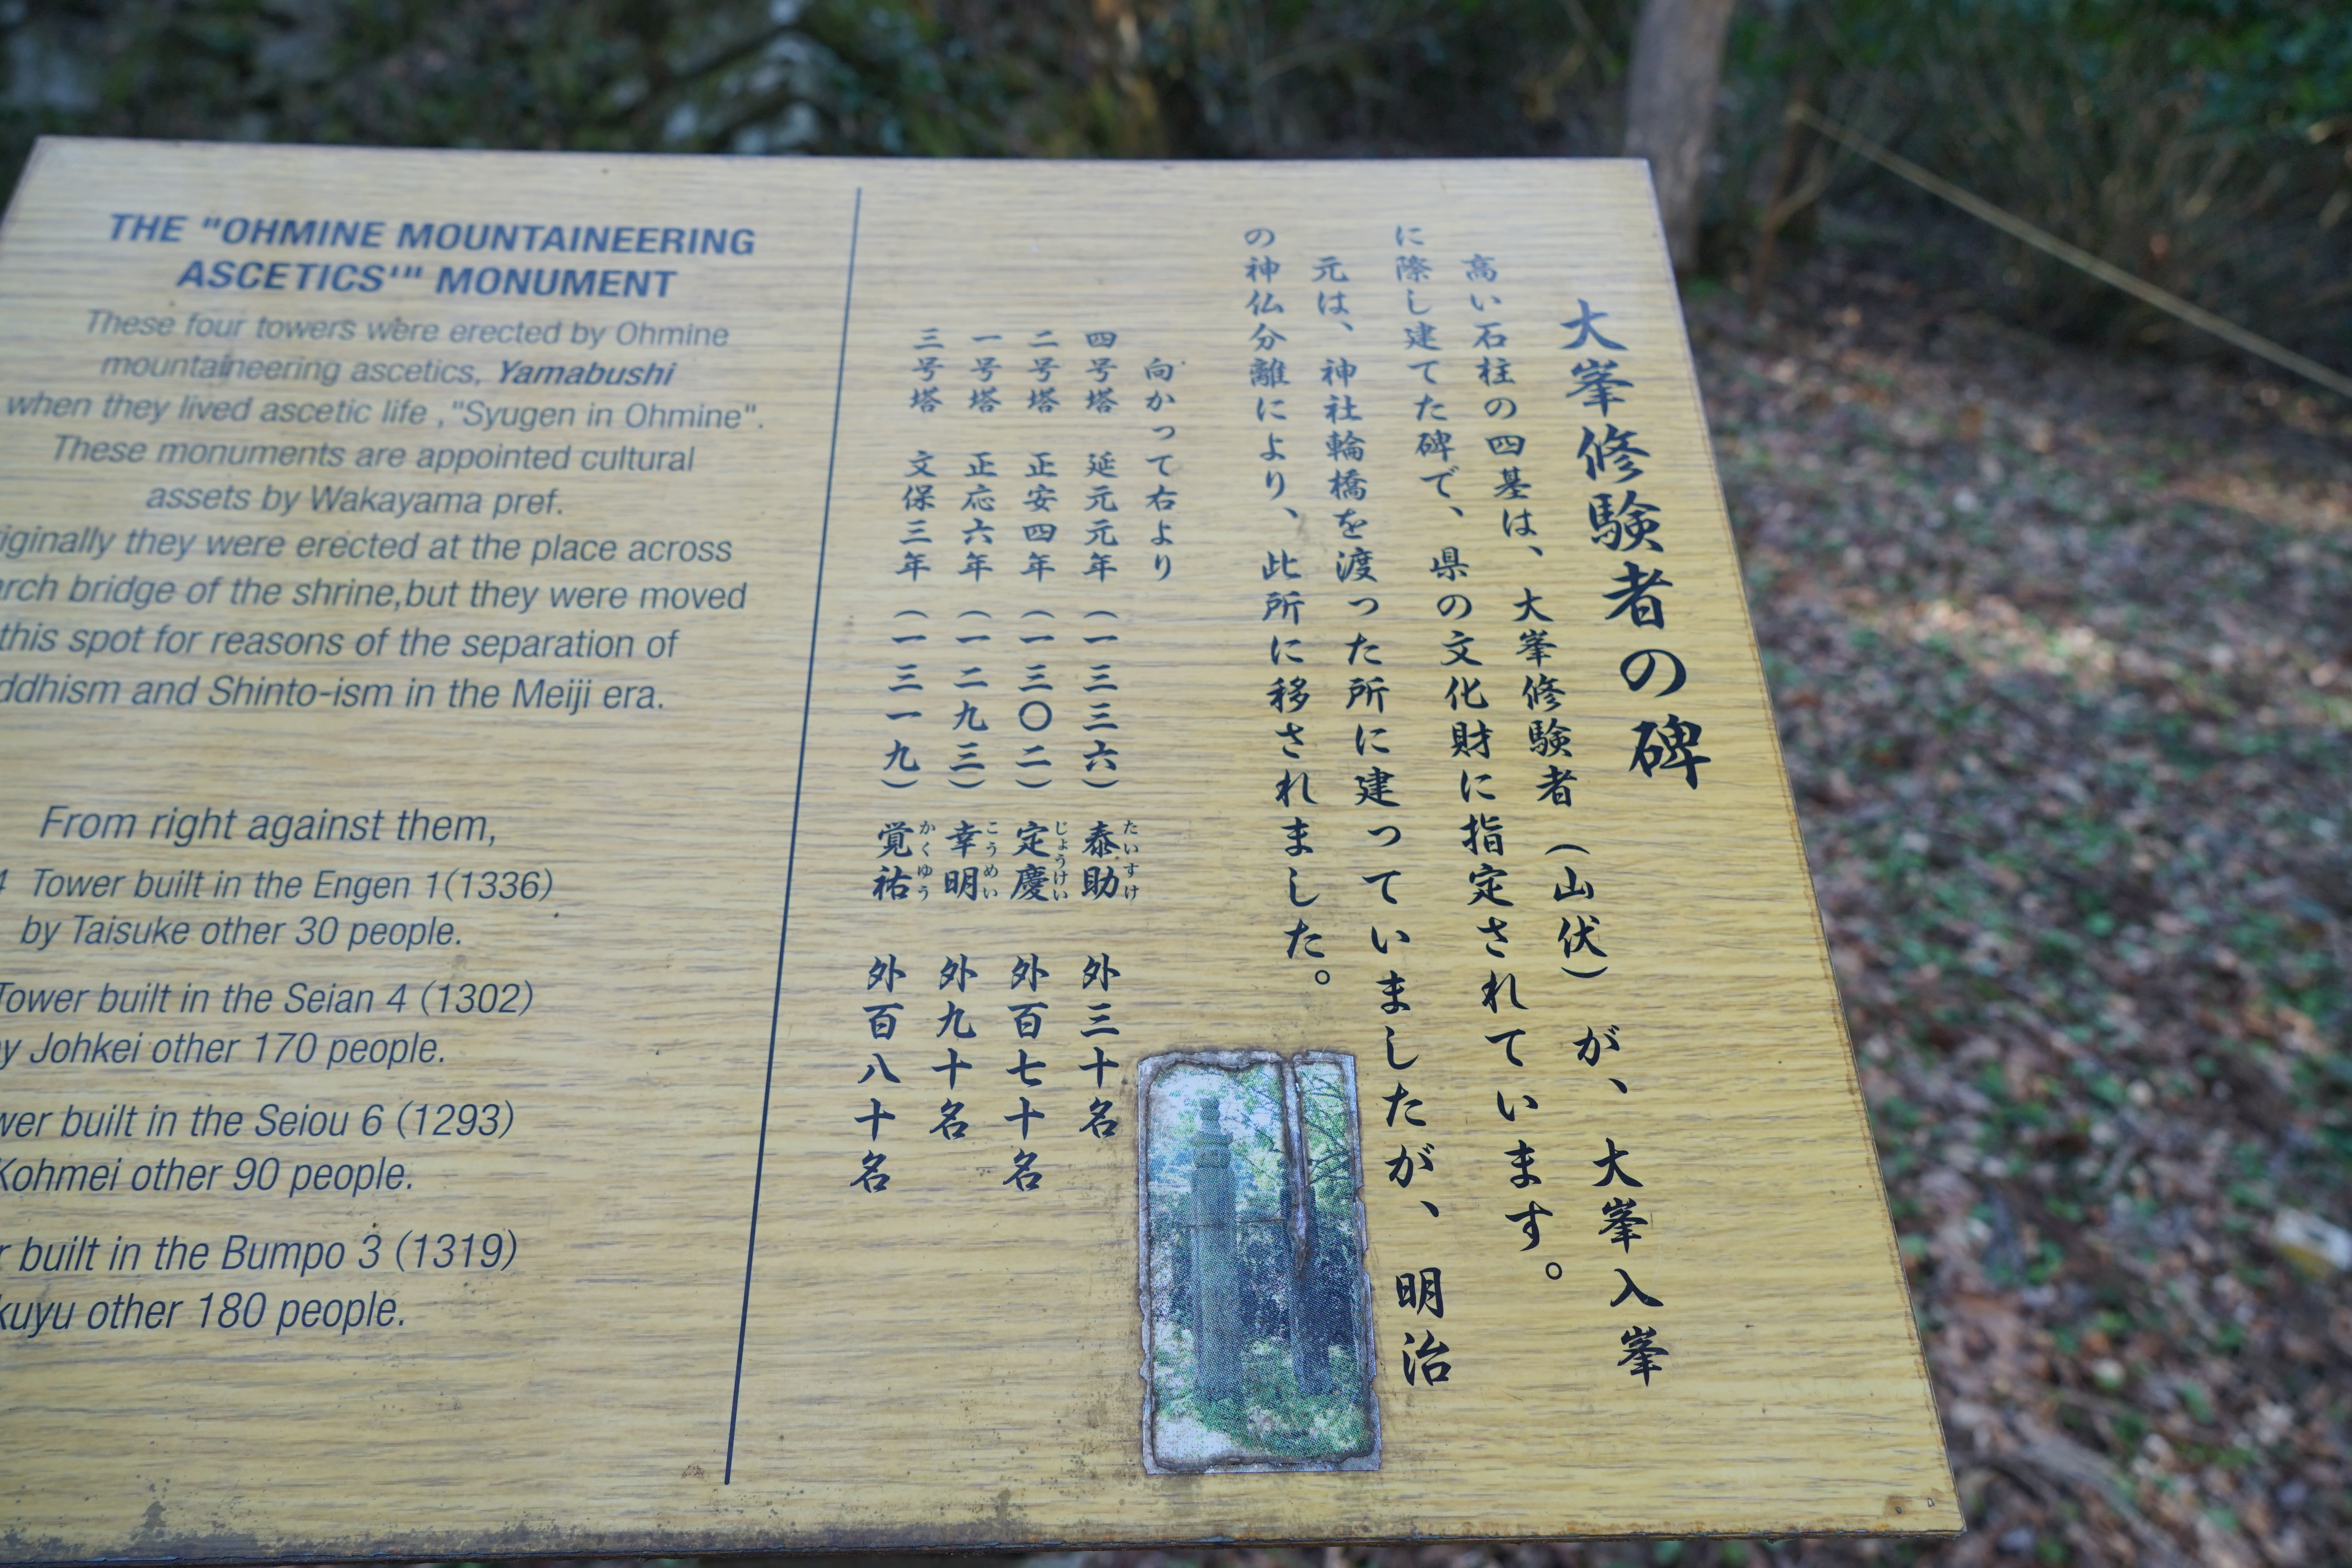 大峯修験者の碑
高い石柱の四基は、大峯修験者（山伏）が、大峯入峯
に際し建てた碑で、県の文化財に指定されています。
元は、神社輪橋を渡った所に建っていましたが、明治
の神仏分離により、此所に移されました。
向かって右より
四号塔 延元元年（一三三六）泰助 外三十名
たいすけ
二号塔 正安四年（一三〇二）定慶 外百七十名
じょうけい
一号塔 正応六年（一二九三）幸明 外九十名
こうめい
三号塔 文保三年（一三一九）覚祐 外百八十名
かくゆう
THE "OHMINE MOUNTAINEERING
ASCETICS'" MONUMENT
These four towers were erected by Ohmine
mountaineering ascetics, Yamabushi
when they lived ascetic life ,"Syugen in Ohmine".
These monuments are appointed cultural
assets by Wakayama pref.
iginally they were erected at the place across
rch bridge of the shrine,but they were moved
this spot for reasons of the separation of
ddhism and Shinto-ism in the Meiji era.
From right against them,
4 Tower built in the Engen 1(1336)
by Taisuke other 30 people.
Tower built in the Seian 4 (1302)
y Johkei other 170 people.
wer built in the Seiou 6 (1293)
Kohmei other 90 people.
r built in the Bumpo 3 (1319)
kuyu other 180 people.